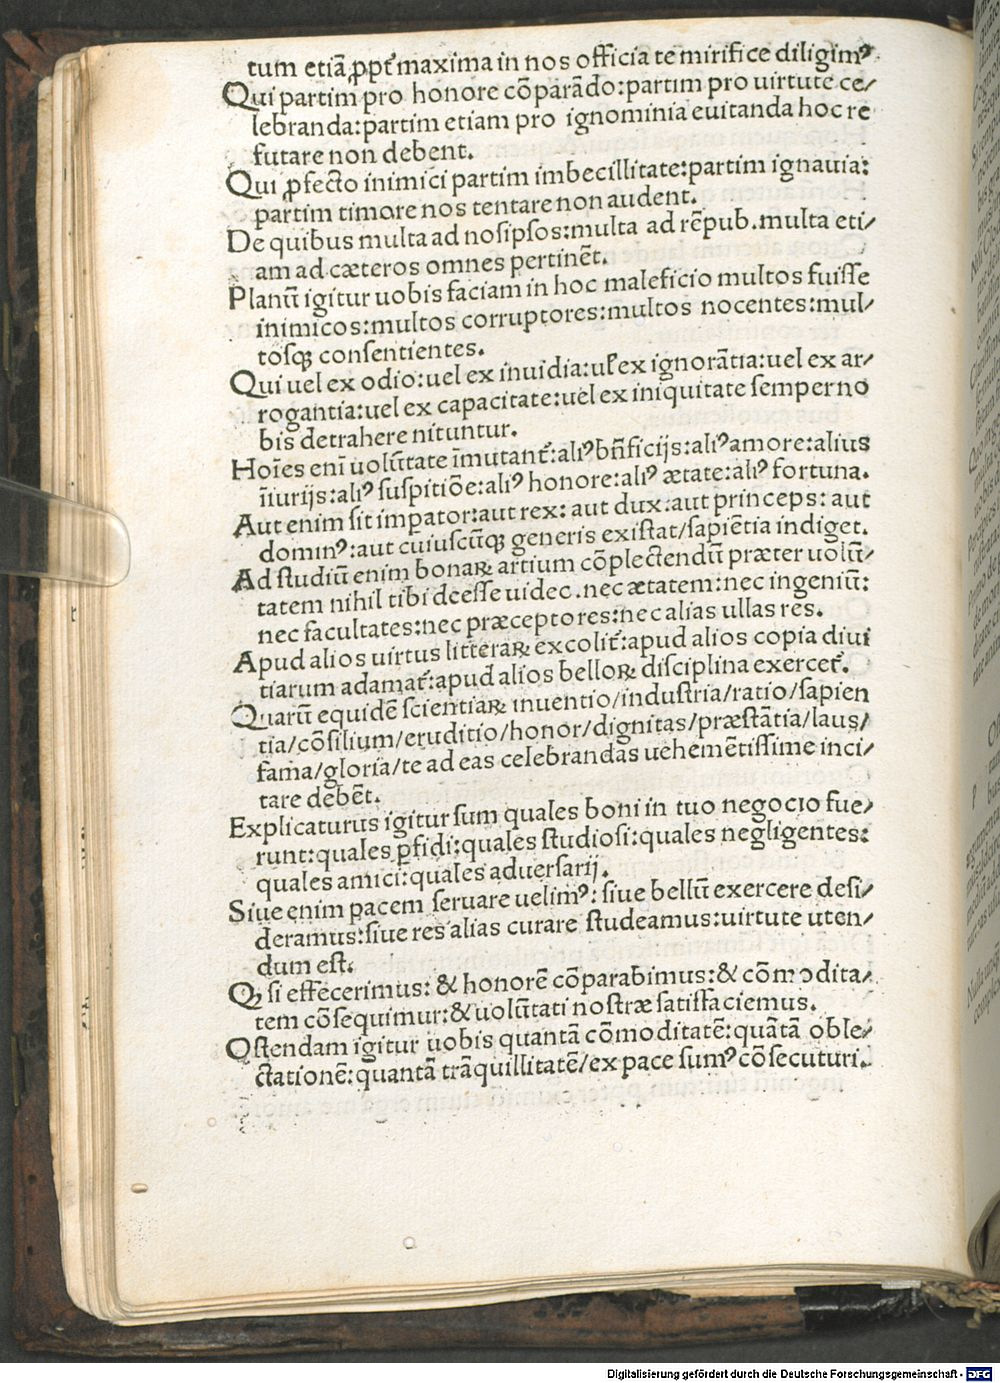 tum etiā ꝓpt̃ maxima in nos officia te mirifice diligimꝰ
Qui partim pro honore cōparādo:partim pro uirtute ce/
lebranda:partim etiam pro ignominia euitanda hoc re
futare non debent.
Qui ꝓfecto inimici partim imbecillitate:partim ignauia:
partim timore nos tentare non audent.
De quibus multa ad nosipsos:multa ad rēpub.multa eti/
am ad cæteros omnes pertinēt.
Planū igitur uobis faciam in hoc maleficio multos fuisse
inimicos:multos corruptores:multos nocentes:mul/
tosqꝫ consentientes.
Qui uel ex odio:uel ex inuidia:uł ex ignorātia:uel ex ar/
rogantia:uel ex capacitate:uel ex iniquitate semper no
bis detrahere nituntur.
Hoīes enī uolūtate īmutant̃:aliꝰ bn̄ficijs:aliꝰ amore:alius
īiurijs:aliꝰ suspitiōe:aliꝰ honore:aliꝰ ætate:aliꝰ fortuna.
Aut enim sit impator:aut rex: aut dux:aut princeps: aut
dominꝰ:aut cuiuscūqꝫ generis existat/sapiētia indiget.
Ad studiū enim bonaꝝ artium cōplectendū præter uolū/
tatem nihil tibi deesse uidec .nec ætatem:nec ingeniū:
nec facultates:nec præceptores:nec alias ullas res.
Apud alios uirtus litteraꝝ excolit̃:apud alios copia diui
tiarum adamat̃:apud alios belloꝝ disciplina exercet̃.
Quarū equidē scientiaꝝ inuentio/industria/ratio/sapien
tia/cōsilium/eruditio/honor/dignitas/præstātia/laus/
fama/gloria/te ad eas celebrandas uehemētissime inci/
tare debēt.
Explicaturus igitur sum quales boni in tuo negocio fue/
runt:quales ꝑfidi:quales studiosi:quales negligentes:
quales amici:quales aduersarij.
Siue enim pacem seruare uelimꝰ: siue bellū exercere desi/
deramus:siue res alias curare studeamus:uirtute uten/
dum est.
Qꝫ si effecerimus: & honorē cōparabimus:& cōmodita/
tem cōsequimur:& uolūtati nostræ satisfaciemus.
Ostendam igitur uobis quantā cōmoditatē:quātā oble/
ctationē:quantā trāquillitatē/ex pace sumꝰ cōsecuturi.
Digitalisierung gefördert durch die Deutsche Forschungsgemeinschaft - DFG